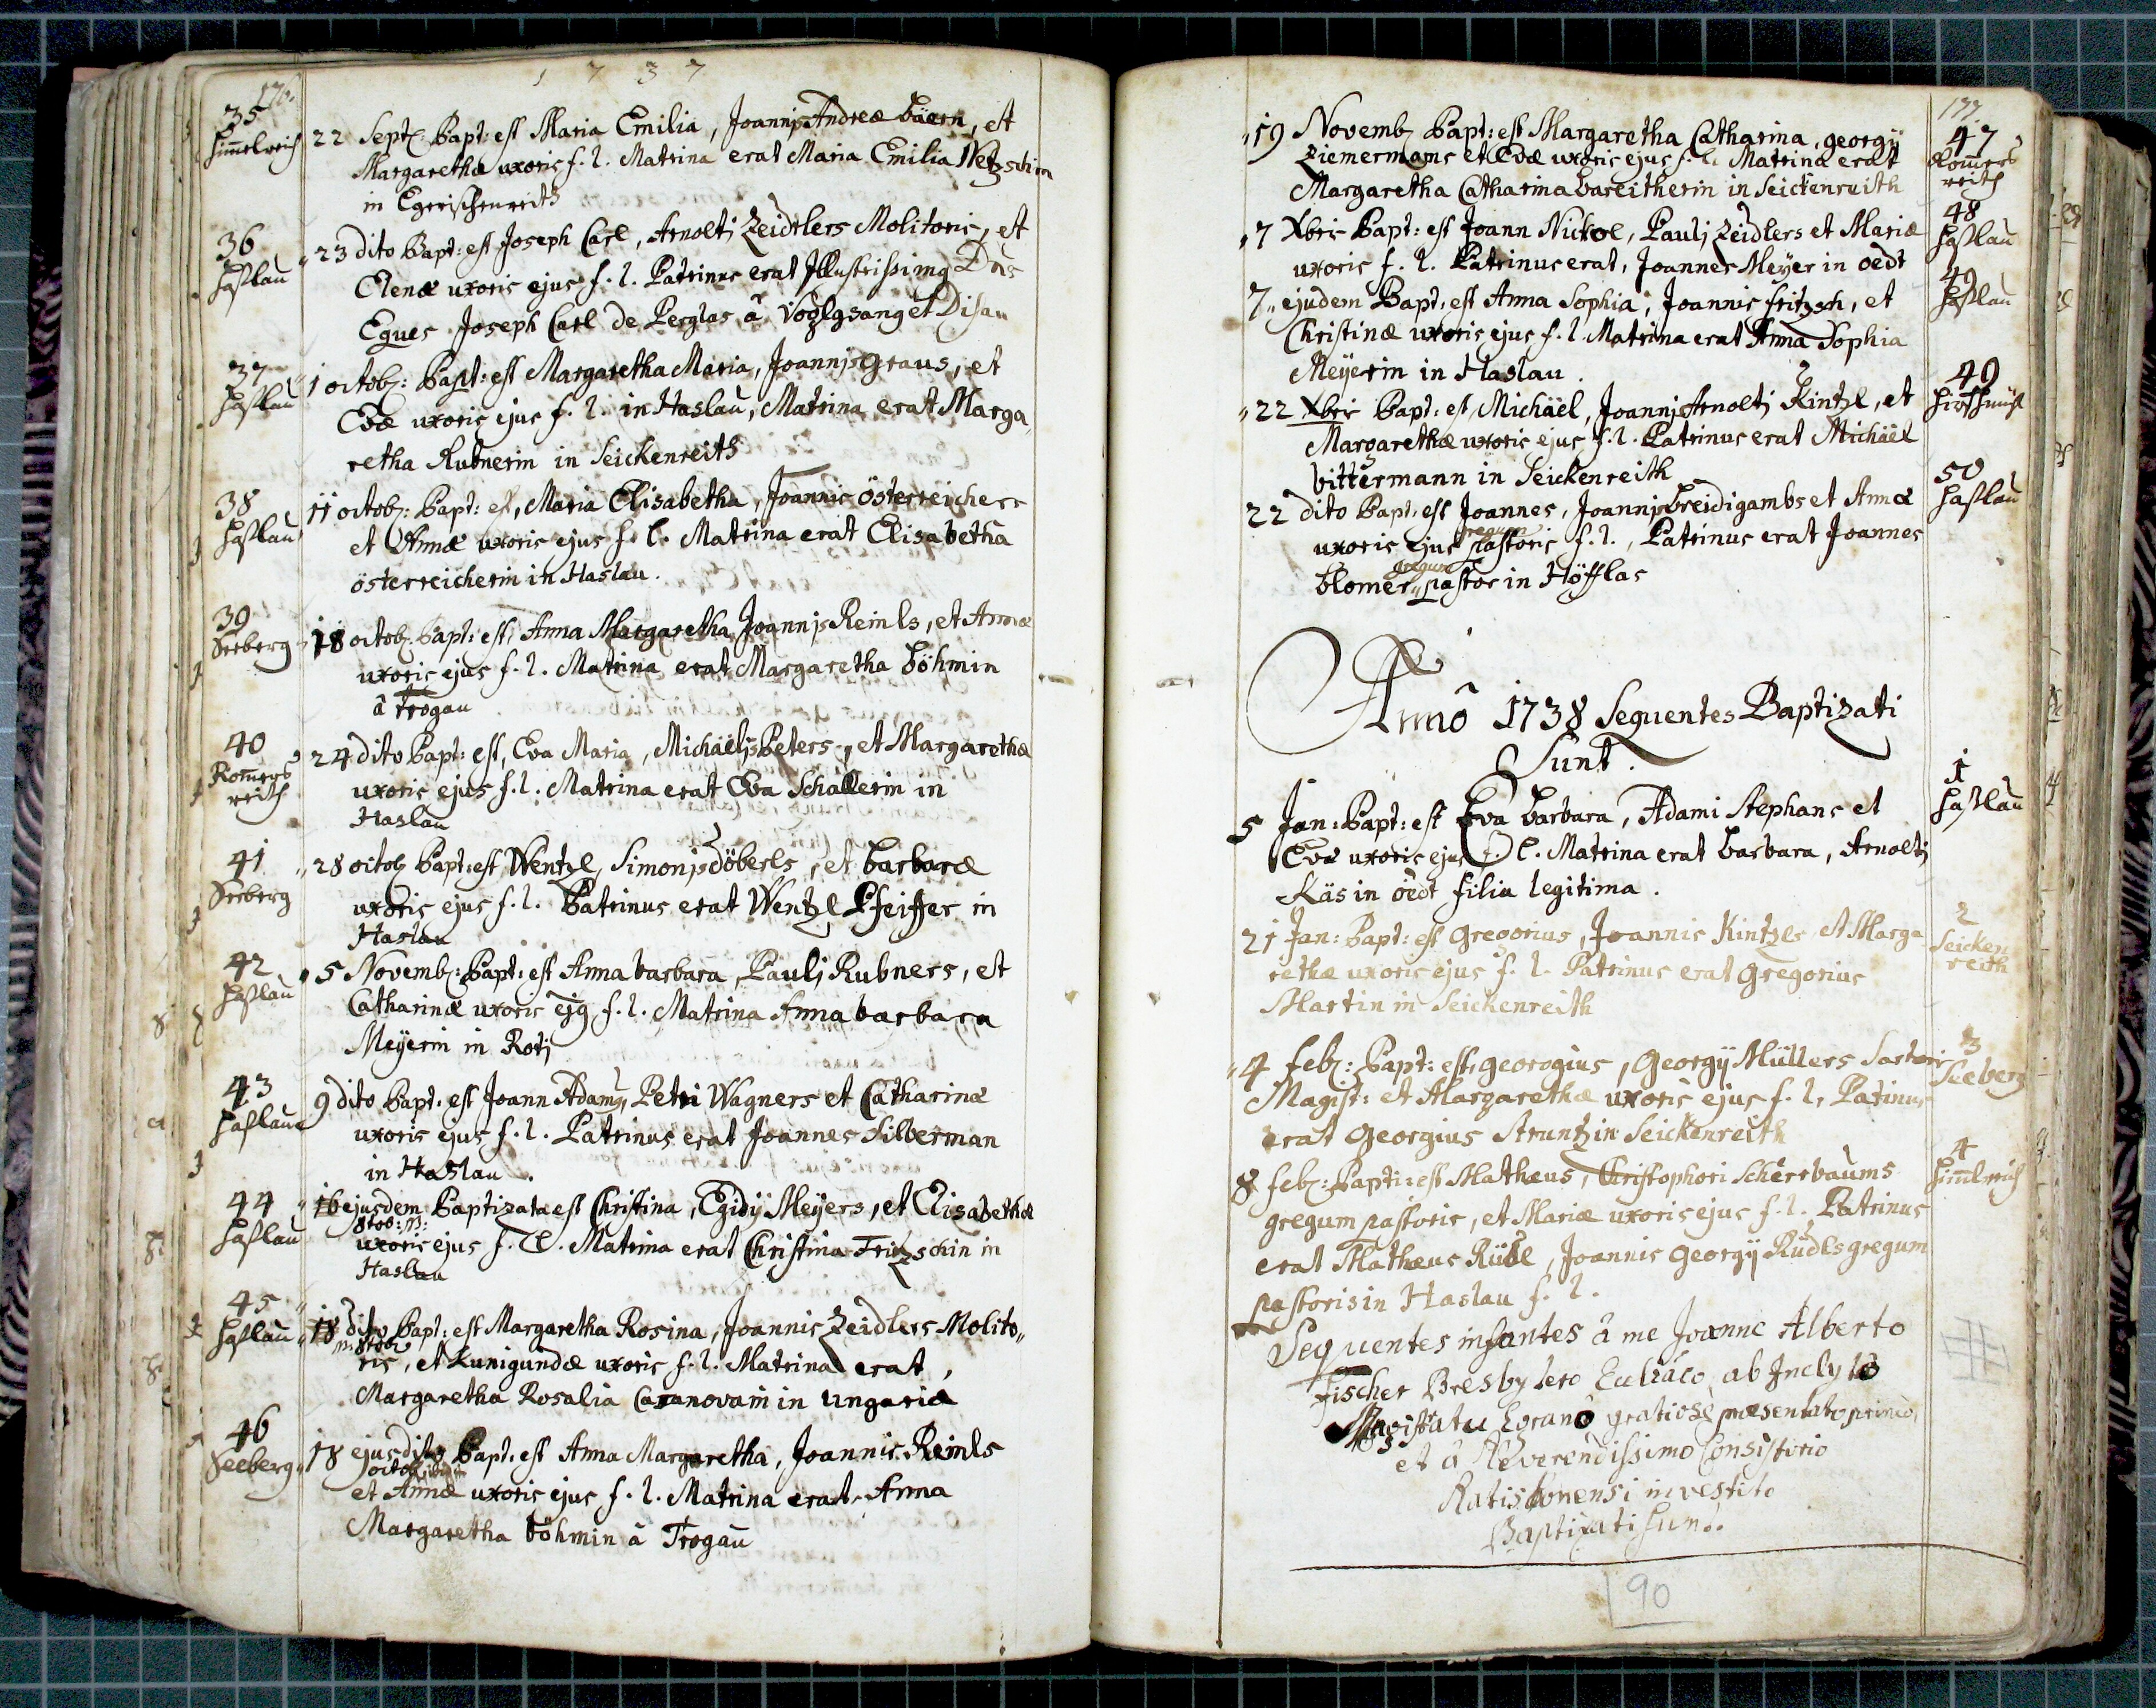 1737
176.
35
Himelreich
22 Sept: Bapt: est Maria Emilia, Joannis Andreæ bäern, et
Margarethæ uxoris f. l. Matrina erat Maria Emilia Wetzschin
in Egerischenreith
36
Haslau
23 dito Bapt: est Joseph Carl, Arnolti Zeidtlers Molitoris, et
Elenæ uxoris ejus f. l. Patrinus erat Illustrissimg Dns
Eques Joseph Carl de Perglas â Voglgsang et Disan
37
Haslau
1 octob: Bapt: est Margaretha Maria, Joannis Graus, et
Evæ uxoris ejus f. l. in Haslau, Matrina erat Marga,
retha Rubnerin in Seickenreith
38
Haslau
11 octob: Bapt: est, Maria Elisabetha, Joannis österreichers
et Annæ uxoris ejus f. l. Matrina erat Elisabetha
österreicherin in Haslau.
39
Seeberg
18 octob: Bapt: est, Anna Margaretha Joannis Reinls, et Annæ
uxoris ejus f. l. Matrina erat Margaretha böhmin
â Trogau
40
Romers
reith
24 dito Bapt: est, Eva Maria, Michaëlis Peters, et Margarethæ
uxoris ejus f. l. Matrina erat Eva Schallerin in
Haslau
41
Seeberg
28 octob Bapt: est Wentzl, Simonis döberls, et barbaræ
uxoris ejus f. l. Patrinus erat Wentzl Pfeiffer in
Haslau
42
Haslau
5 Novemb: Bapt: est Anna barbara, Pauli Rubners, et
Catharinæ uxoris ejg f. l. Matrina Anna barbara
Meyerin in Rotj
43
Haslau
9 dito Bapt: est Joann Adamg, Petri Wagners et Catharinæ
uxoris ejus f. l. Patrinus erat Joannes Silberman
in Haslau.
44
Haslau
16 ejusdem Baptizata est Christina, Egidÿ Meyers, et Elisabethæ
8tob: m:
uxoris ejus f. l. Matrina erat Christina Fritzschin in
Haslau
45
Haslau
18 dito Bapt: est Margaretha Rosina, Joannis Zeidlers Molito„
m: 8tob
ris, et Kunigundæ uxoris f. l. Matrina erat,
Margaretha Rosalia Casanovain in Ungaria
46
Seeberg
18 ejus dito Bapt: est Anna Margaretha, Joannis Reinls
octob:
et Annæ uxoris ejus f. l. Matrina erat Anna
Margaretha böhmin â Trogau
177.
19 Novemb Bapt: est Margaretha Catharina, georgÿ
Ziemermans et Evæ uxoris ejus f. l. Matrina erat
Margaretha Catharina bareitherin in Seickenreith
47
Romers
reith
7 Xbris Bapt: est Joann Nickol, Pauli Zeidlers et Mariæ
uxoris f. l. Patrinus erat, Joannes Meyer in oedt
48
Haslau
7 ejudem Bapt: est Anna Sophia, Joannis fritzsch, et
Christinæ uxoris ejus f. l. Matrina erat Anna Sophia
Meyerin in Haslau.
49
Haslau
22 Xbris Bapt: est Michäel, Joannis Arnolti Kintzl, et
Margarethæ uxoris ejus f. l. Patrinus erat Michäel
bittermann in Seickenreith
49
22 dito Bapt: est Joannes, Joannis breidigambs et Annæ
gregum
uxoris ejus pastoris f. l., Patrinus erat Joannes
gregum
blomer, pastor in Höfflas
50
Haslau
Anno 1738 Sequentes Baptizati
Sunt.
5 Jan: Bapt: est Eva barbara, Adami Stephans et
Evæ uxoris ejus f. l. Matrina erat barbara, Arnolti
Käs in öedt filia legitima.
1
Haslau
21 Jan: Bapt: est Gregorius, Joannis Kintzls et Marga
rethæ uxoris ejus f. l. Patrinus erat Gregorius
Martin in Seickenreith
2
Seicken
reith
4 feb: Bapt: est, georogius, Georgÿ Müllers Sartoris
Magist: et Margarethæ uxoris ejus f. l. Patinus
erat Georgius Struntz in Seickenreith
3
Seeberg
8 feb: Bapti: est Mathæus, Christophori Scherrbaums
gregum pastoris, et Mariæ uxoris ejus f. l. Patrinus
erat Mathæus Rüdl, Joannis Georgÿ Rüdls gregum
pastoris in Haslau f. l.
4
Himlreich
Sequentes infantes â me Joanne Alberto
Fischer Presbytero Curato, ab Inclyto
Magistratu Egrano gratiose præsentato primo,
et â Reverendissimo Consistorio
Ratisbonensi investito
Baptizati sunt.
90